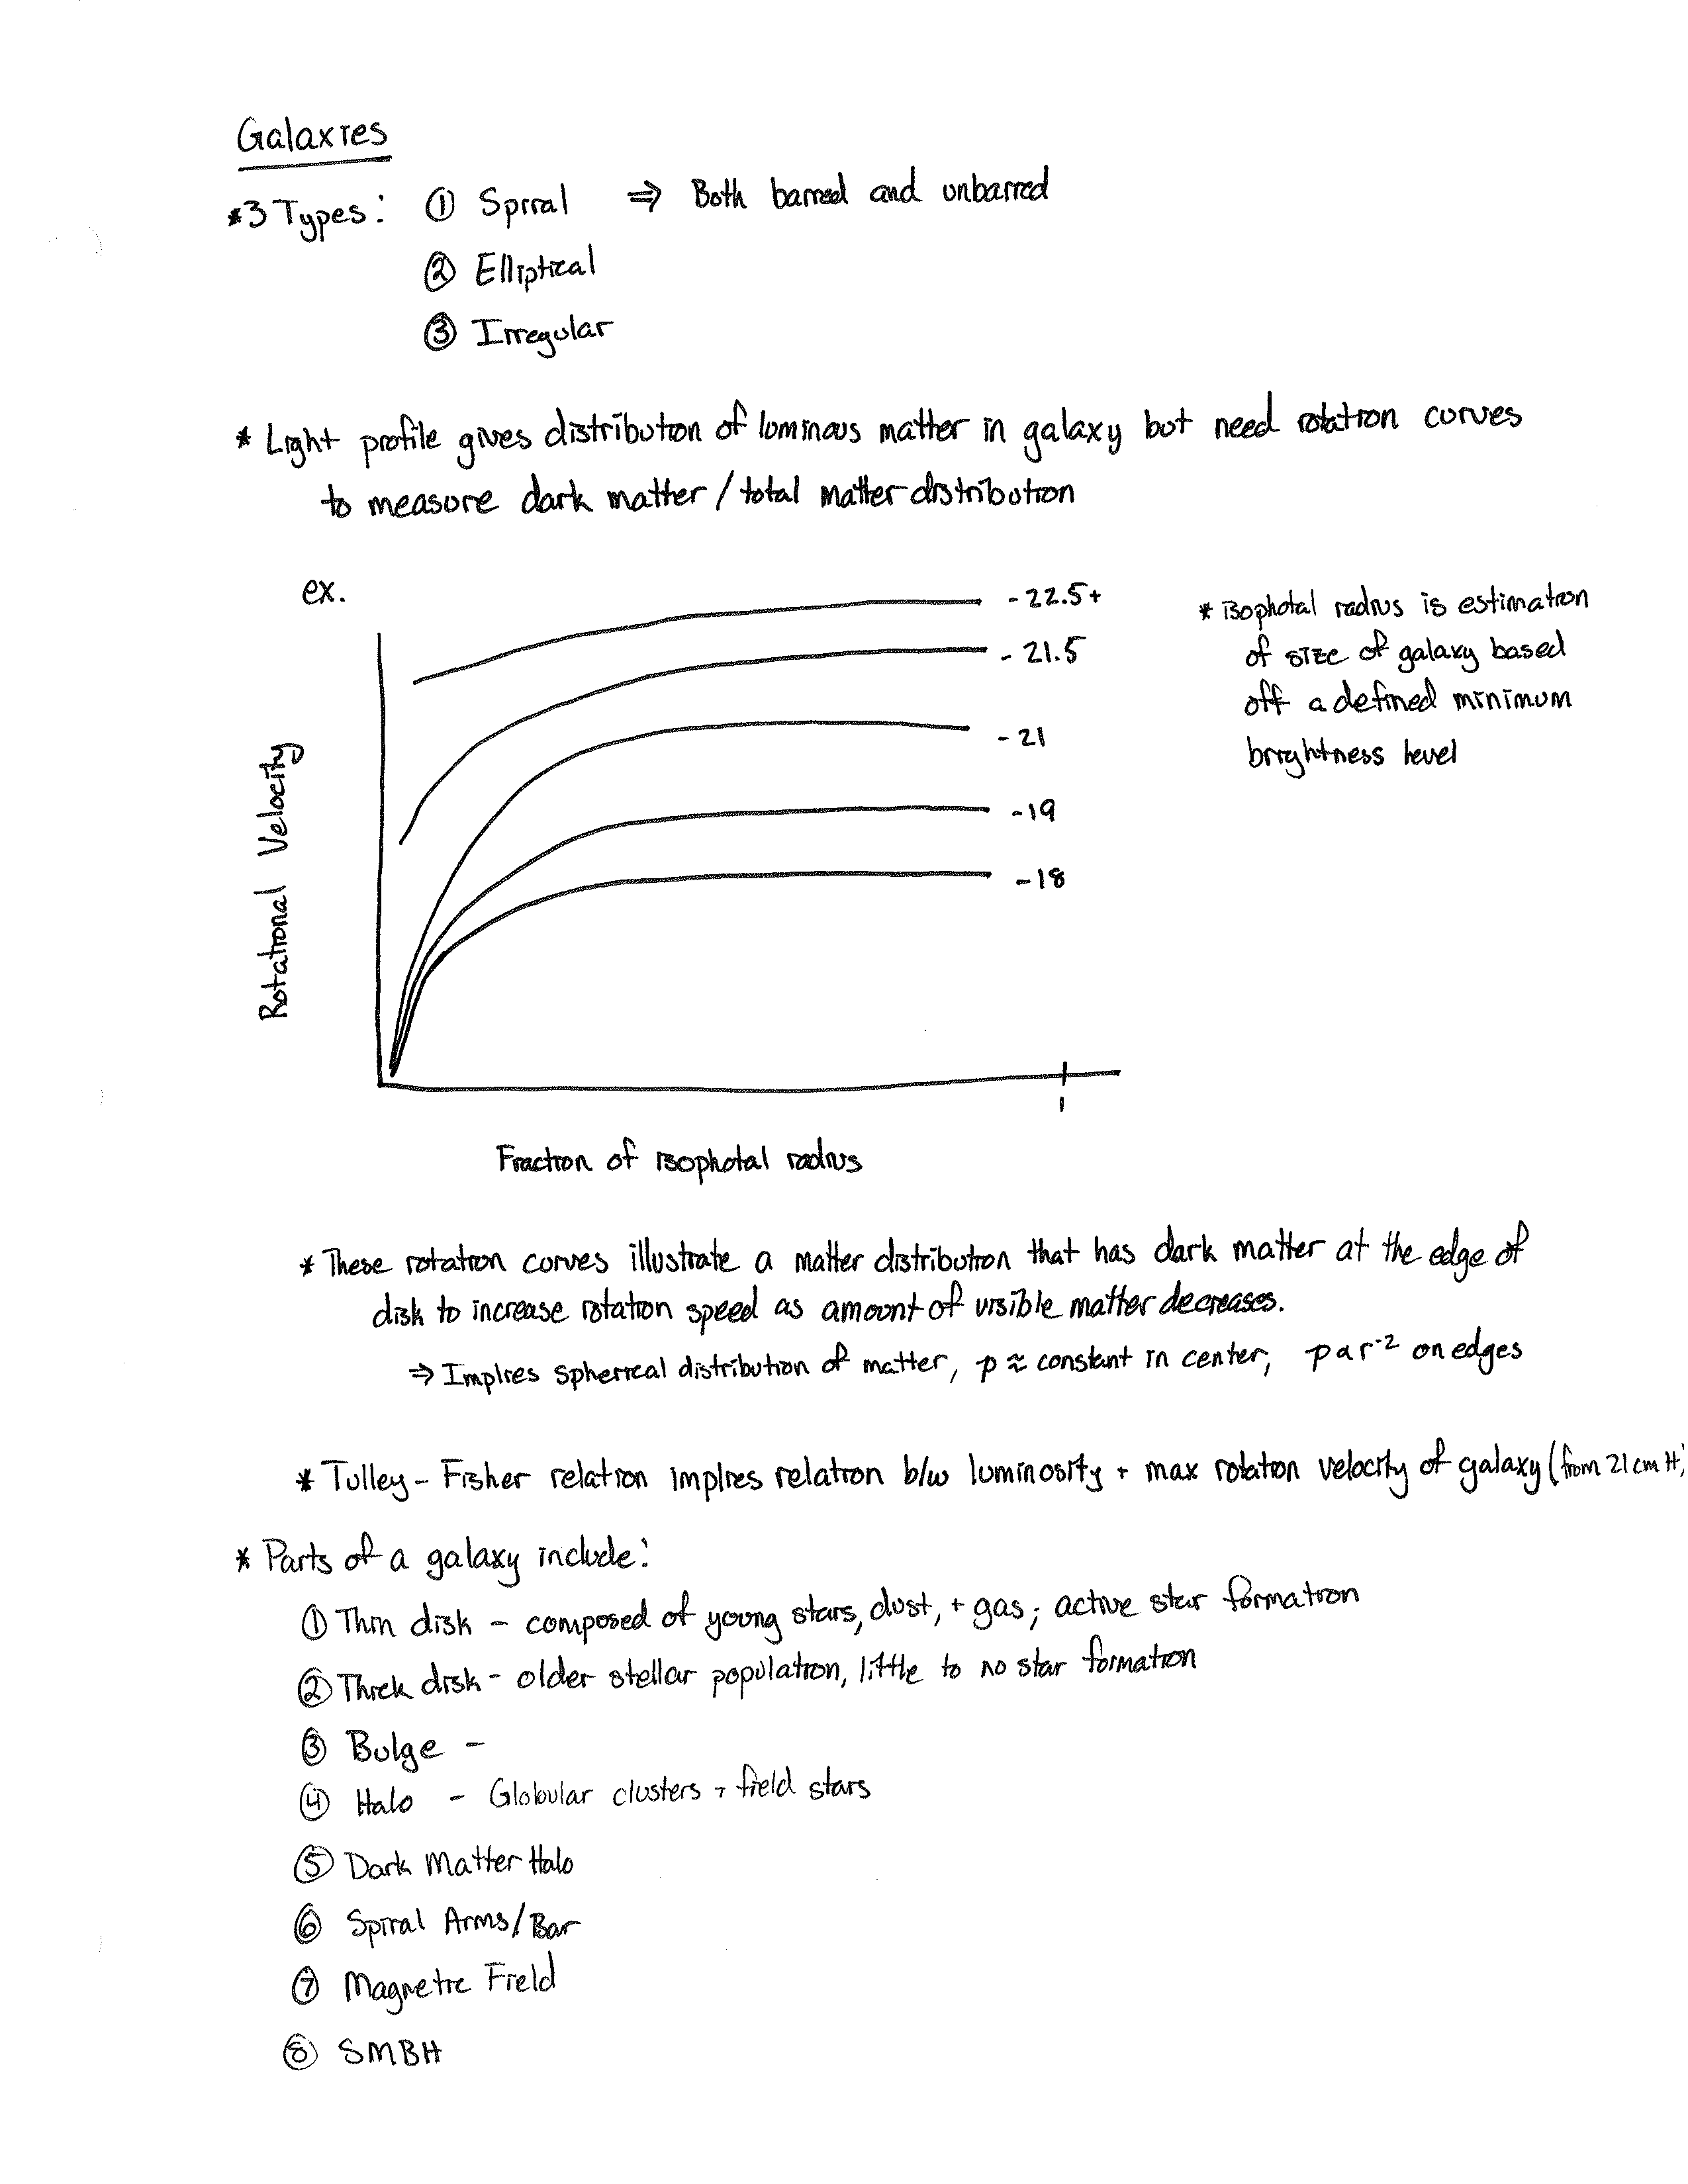 Galaxies
*3 Types: ① Spiral ⇒ Both barred and unbarred
② Elliptical
③ Irregular
* Light profile gives distribution of luminous matter in galaxy but need rotation curves
to measure dark matter / total matter distribution
ex.
-22.5+
-21.5
-21
-19
-18
Rotational Velocity
1
Fraction of isophotal radius
* isophotal radius is estimation
of size of galaxy based
off a defined minimum
brightness level
* These rotation curves illustrate a matter distribution that has dark matter at the edge of
disk to increase rotation speed as amount of visible matter decreases.
⇒ Implies spherical distribution of matter, ρ ≈ constant in center, ρ α r⁻² on edges
* Tulley-Fisher relation implies relation b/w luminosity + max rotation velocity of galaxy (from 21 cm H)
* Parts of a galaxy include:
① Thin disk - composed of young stars, dust, + gas; active star formation
② Thick disk - older stellar population, little to no star formation
③ Bulge -
④ Halo - Globular clusters + field stars
⑤ Dark Matter Halo
⑥ Spiral Arms/Bar
⑦ Magnetic Field
⑧ SMBH